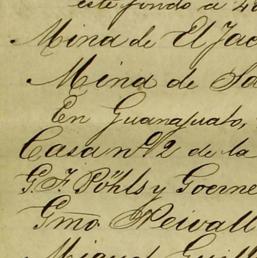 este fondo a 4
Mina de El Ja
Mina de Sa
En Guanajuato,
Casa nº 2 de la
G. F. Pöhls y Goerne
Gmo
Miguel